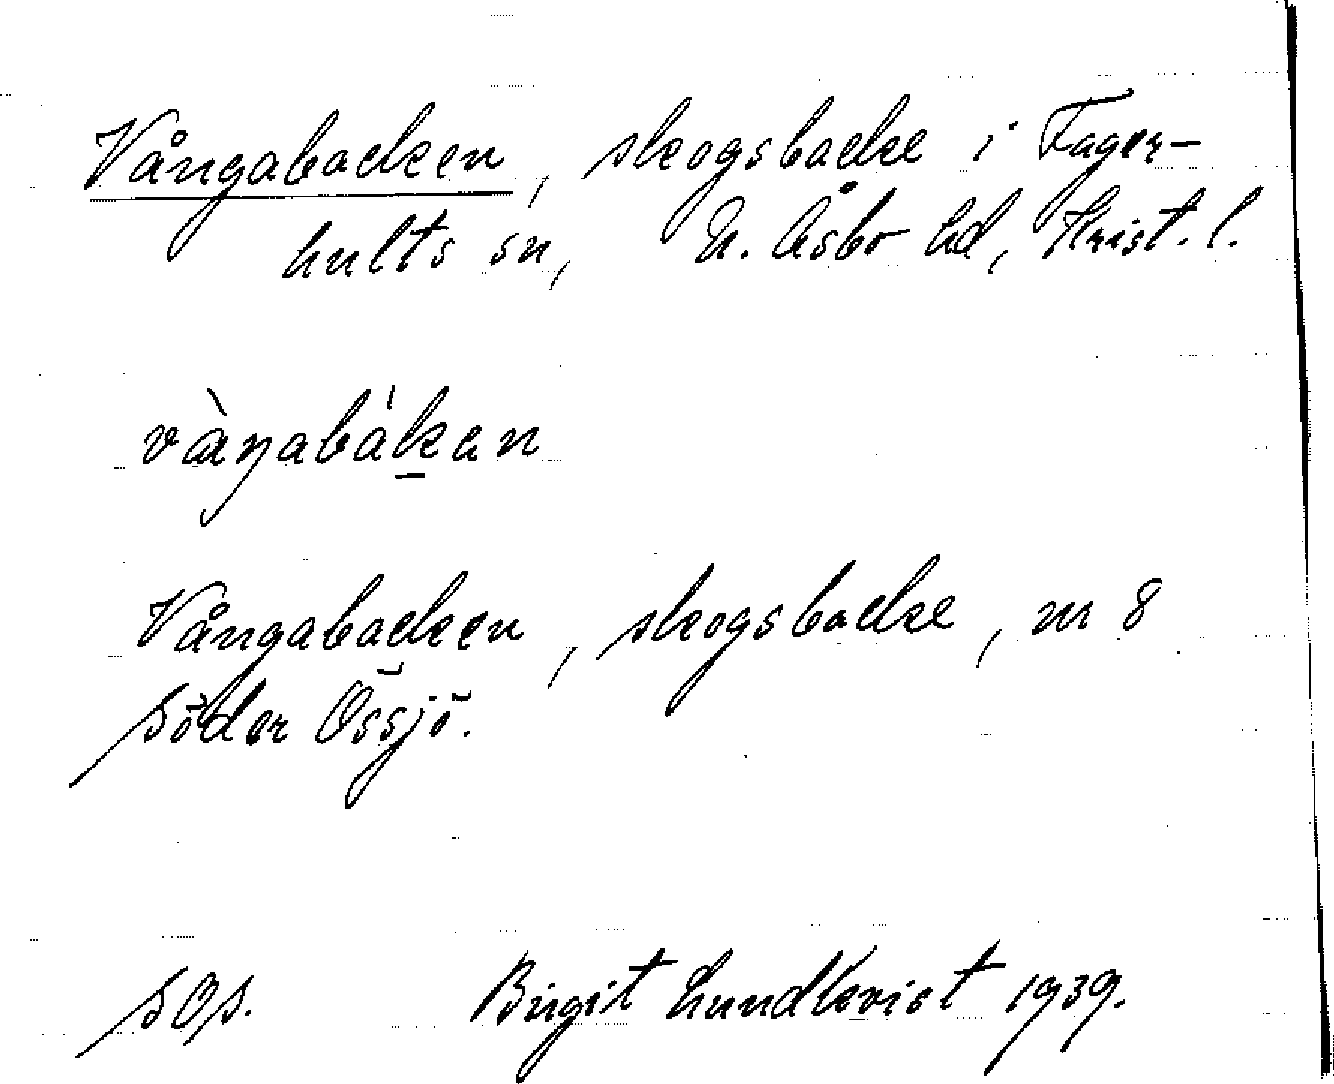 Vångabacken, skogsbacke i Fager-
hults sn, N. Åsbo hd, Krist. l.
vàŋabák̲an
Vångabacken, skogsbacke, nr 8
Söder Össjö.
SOS. Birgit Lundkvist 1939.